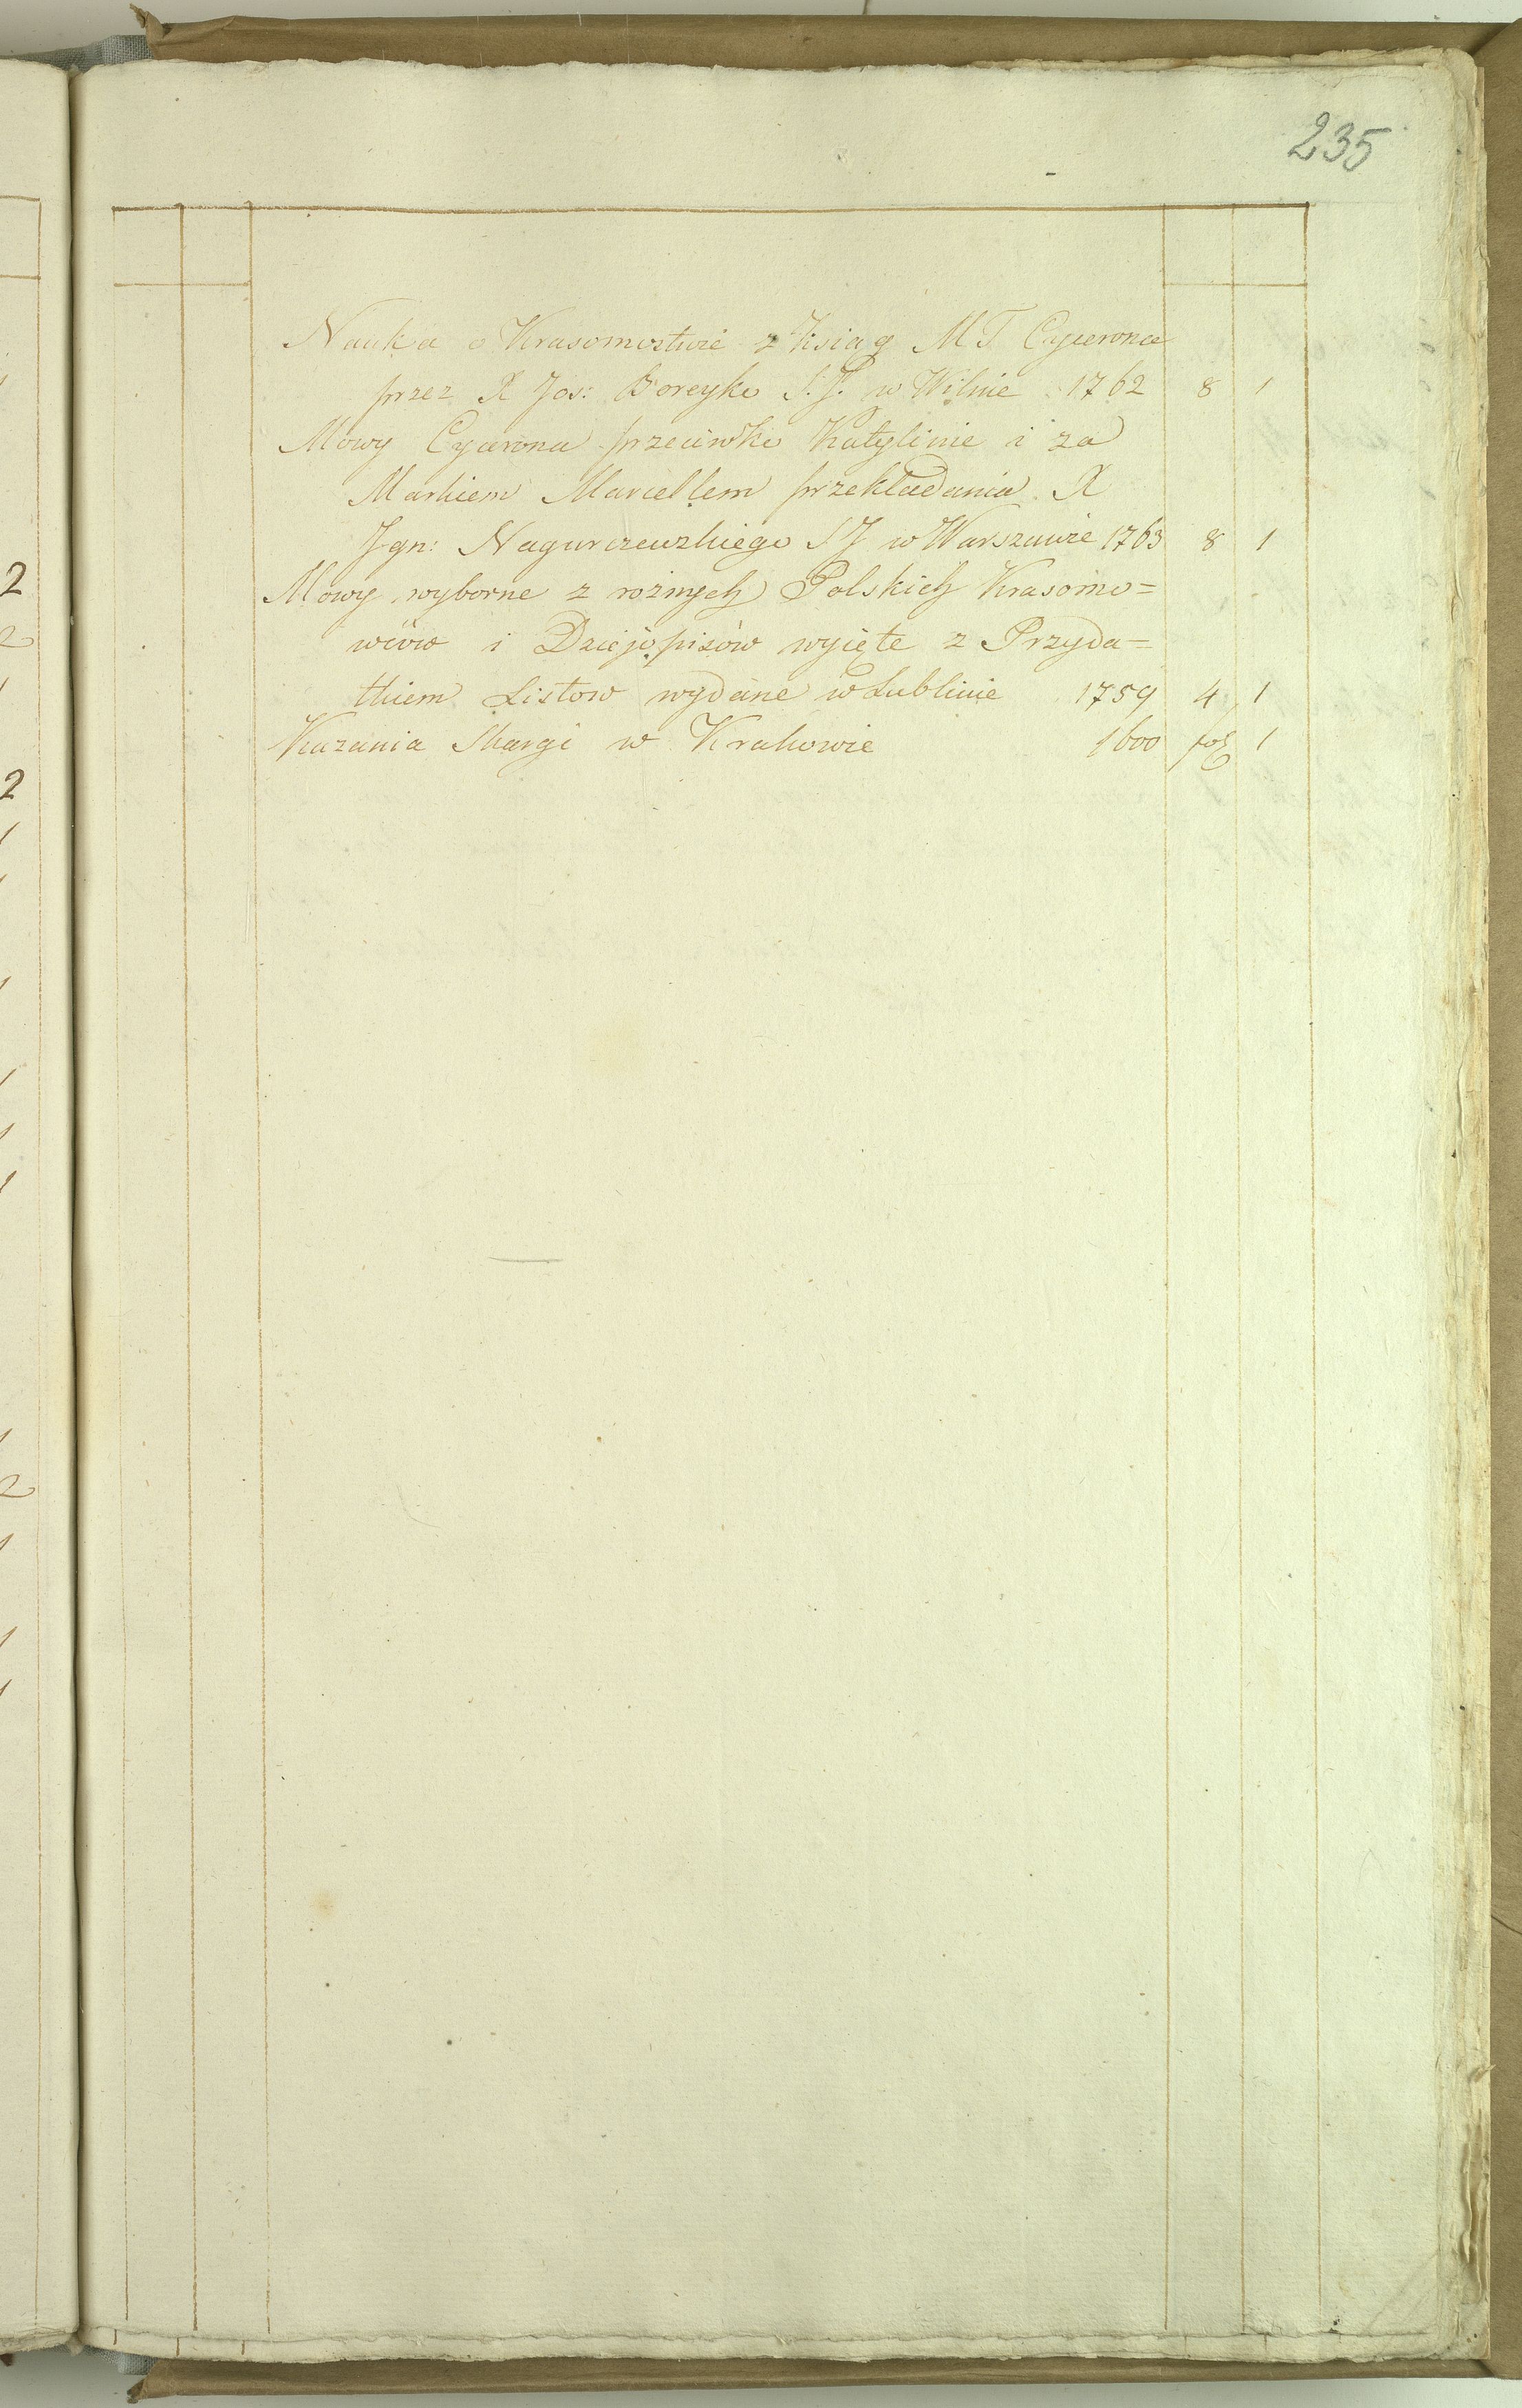 235
Nauka o Krasomostwie z Ksiąg M T Cycerona
przez X Jos: Boreyko S. J. w Wilnie 1762 8 1
Mowy Cycerona przeciwko Katylinie i za
Markiem Marcellem przekładania X
Jgn: Nagurczewskiego S J w Warszawie 1763 8 1
Mowy wyborne z rożnych Polskich Krasomo=
wców i Dziejopisów wyięte z Przyda=
tkiem Listow wydane w Lublinie 1759 4 1
Kazania Skargi w Krakowie 1600 fol 1
2
2
1
2
1
1
1
1
1
1
1
2
1
1
1